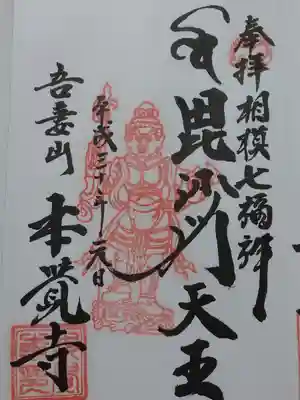 奉拝 相模七福神
毘沙門天王
平成三十年一月元日
吾妻山
本覚寺